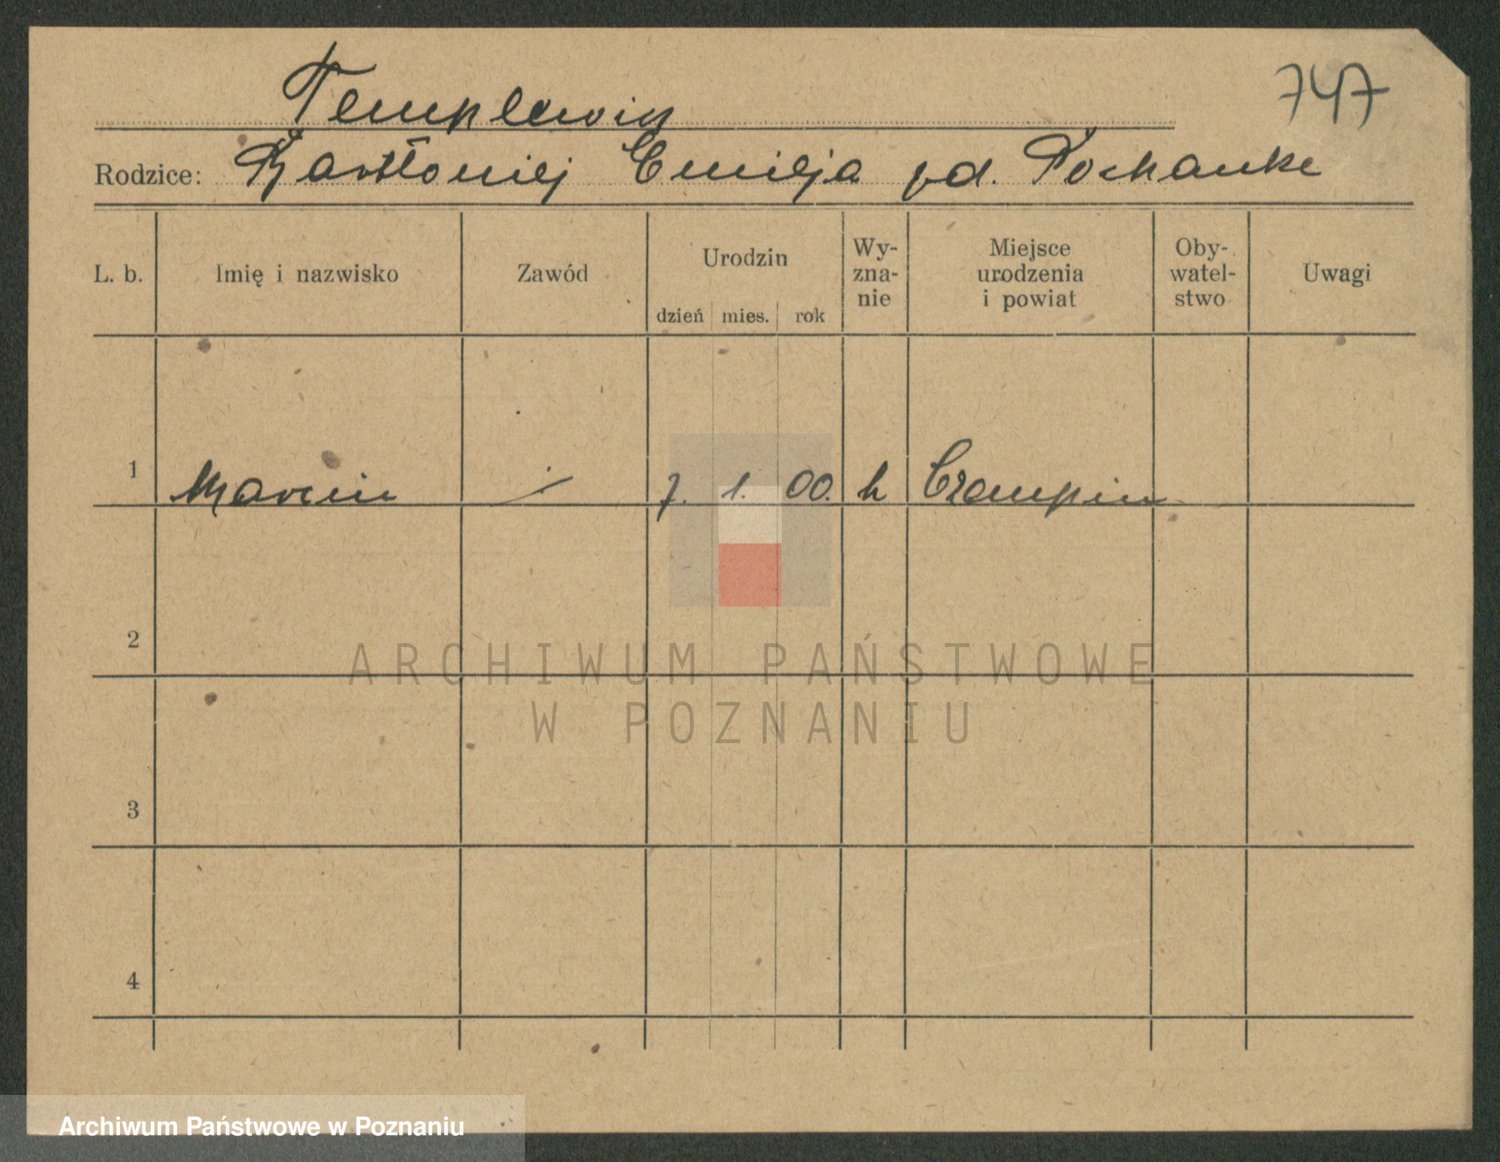 Templewicz
747
Rodzice: Bartłomiej Emilja Pochanke
L. b. Imię i nazwisko Zawód Urodzin dzień mies. rok Wy-zna-nie Miejsce urodzenia i powiat Oby-watel-stwo Uwagi
1 Marcin 7. 1. 00. k Czempin
2
3
4
ARCHIWUM PAŃSTWOWE
W POZNANIU
Archiwum Państwowe w Poznaniu